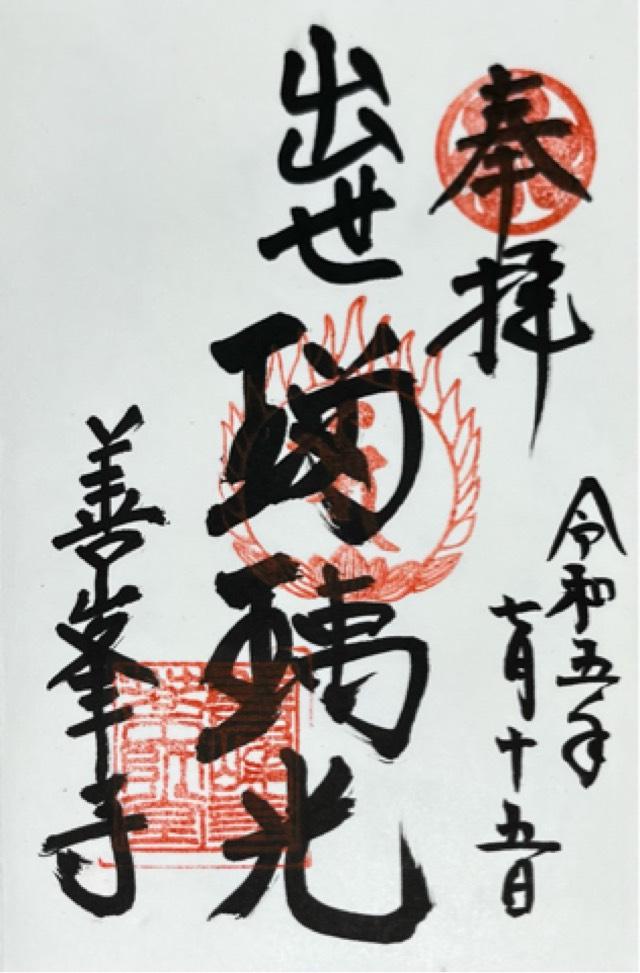 奉拝
令和五年
七月十五日
出世
瑠璃光
善峯寺